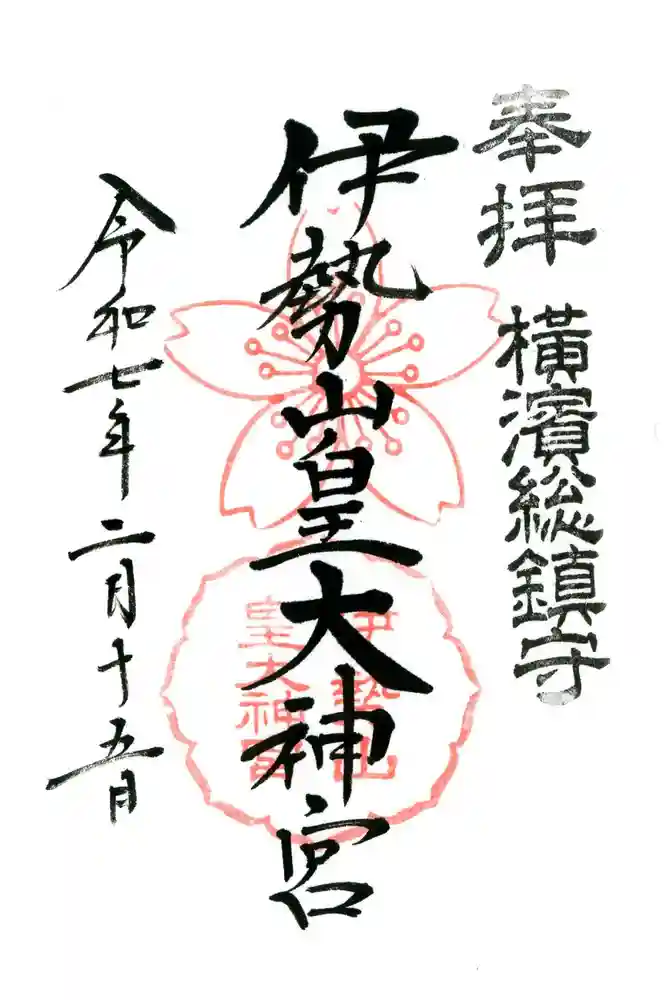 奉拝　横濱総鎮守
伊勢山皇大神宮
伊勢山
皇大神宮
令和七年二月十五日